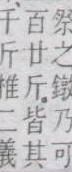 祭之鐓乃可
百廿斤。皆其
千斤推二義